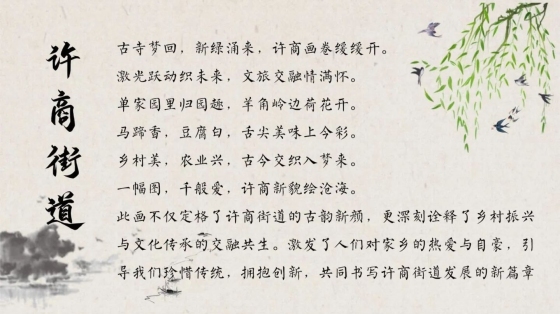 许商街道
古寺梦回，新绿涌来，许商画卷缓缓开。
激光跃动织未来，文旅交融情满怀。
单家园里归园趣，羊角岭边荷花开。
马蹄香，豆腐白，舌尖美味上今彩。
乡村美，农业兴，古今交织入梦来。
一幅图，千般爱，许商新貌绘沧海。
此画不仅定格了许商街道的古韵新颜，更深刻诠释了乡村振兴
与文化传承的交融共生。激发了人们对家乡的热爱与自豪，引
导我们珍惜传统，拥抱创新，共同书写许商街道发展的新篇章